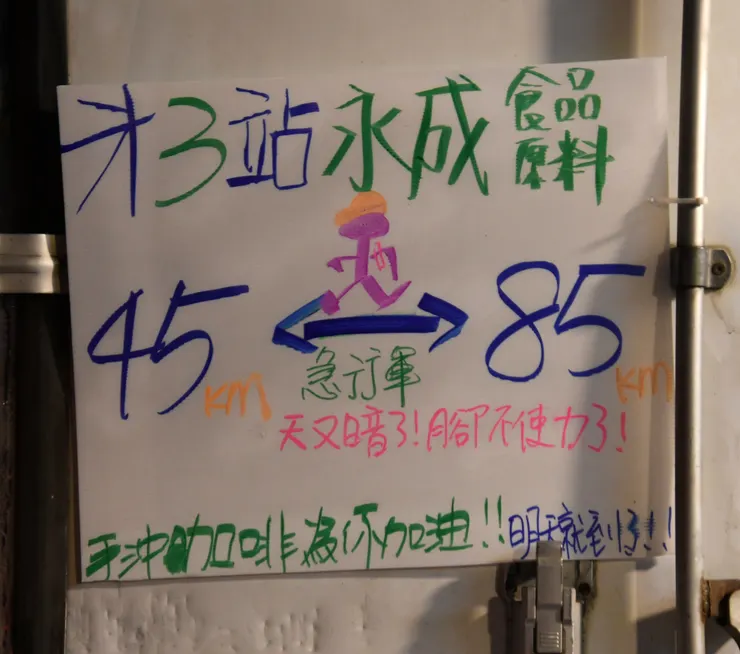 才3站永成食品原料
45km 85km
急行軍
天又暗了!腳不使力了!
手沖咖啡為你加油!!明天就到了!!!